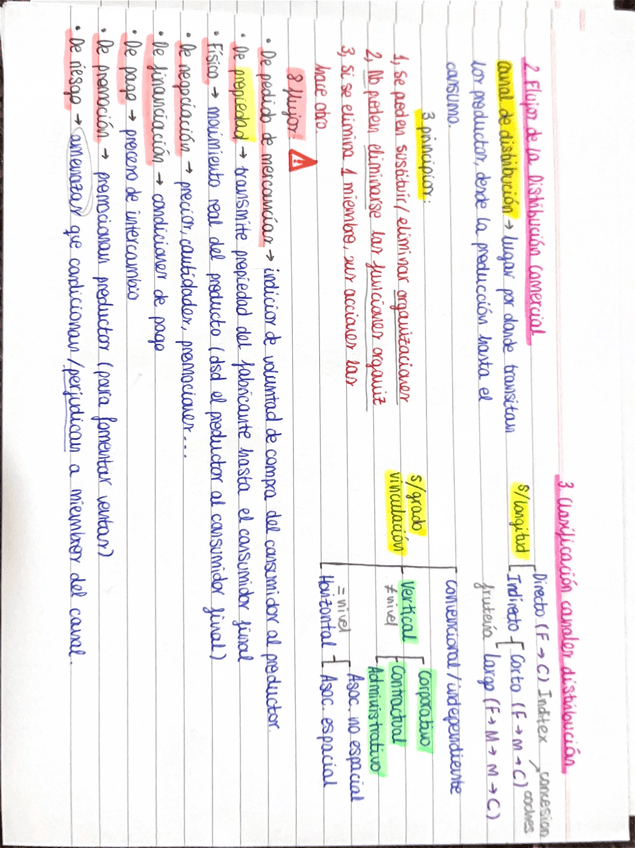 2 Flujos de la Distribución Comercial
canal de distribución → lugar por donde transitan
los productos, desde la producción hasta el
consumo.
3 principios:
1, se pueden sustituir/eliminar organizaciones
2, No pueden eliminarse las funciones organiz
3, si se elimina 1 miembro, sus acciones las
hace otro.
3 Clasificación canales distribución
s/longitud
Directo (F → C) Inditex
Indirecto
Corto (F → m → C)
concesion coches
Largo (F → M → m → C)
frutería
s/grado vinculación
convencional/independiente
Vertical
≠ nivel
Corporativo
Contractual
Administrativo
Horizontal
= nivel
Asoc. no espacial
Asoc. espacial
8 flujos:
• De pedido de mercancías → indicios de voluntad de compra del consumidor al productor.
• De propiedad → transmite propiedad del fabricante hasta el consumidor final
• Físico → movimiento real del producto (dsd el productor al consumidor final)
• De negociación → precios, cantidades, promociones...
• De financiación → condiciones de pago
• De pago → precio de intercambio
• De promoción → promocionan productos (para fomentar ventas)
• De riesgo → amenazas que condicionan/perjudican a miembros del canal.